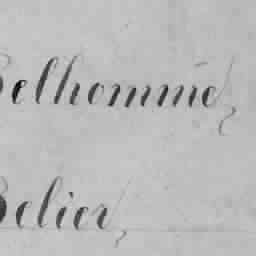 Belhomme,
Belier,